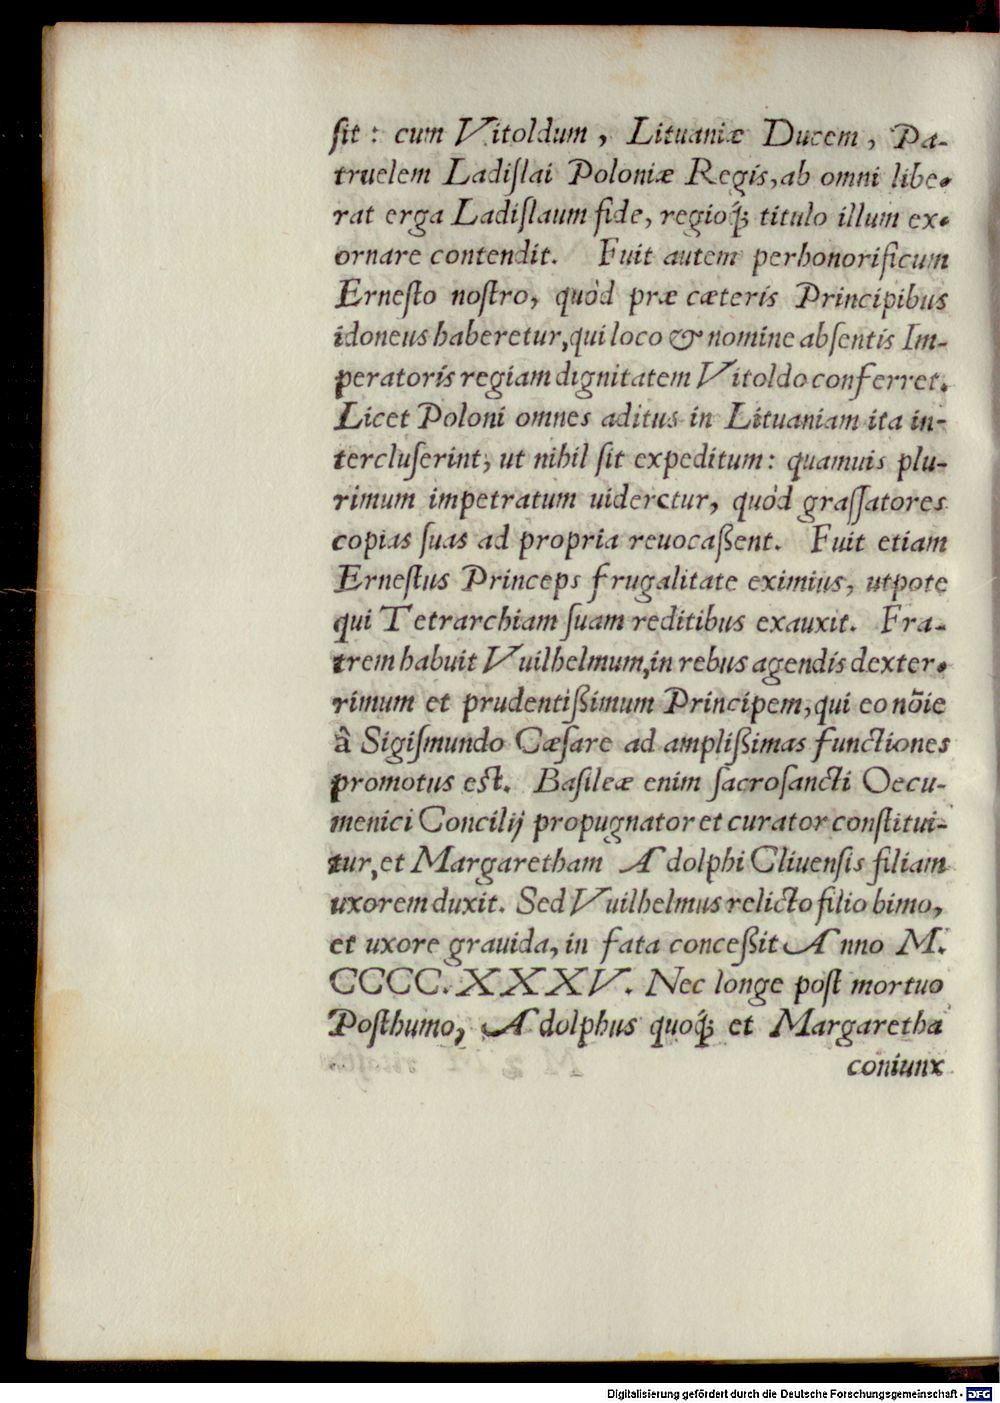 ſit : cum Vitoldum , Lituaniæ Ducem , Pa-
truelem Ladiſlai Poloniæ Regis, ab omni libe-
rat erga Ladiſlaum fide, regioq́; titulo illum ex-
ornare contendit. Fuit autem perhonorificum
Erneſto noſtro, quòd præ cæteris Principibus
idoneus haberetur, qui loco & nomine abſentis Im-
peratoris regiam dignitatem Vitoldo conferret.
Licet Poloni omnes aditus in Lituaniam ita in-
tercluſerint, ut nihil ſit expeditum: quamuis plu-
rimum impetratum uideretur, quòd graſſatores
copias ſuas ad propria reuocaßent. Fuit etiam
Erneſtus Princeps frugalitate eximius, utpote
qui Tetrarchiam ſuam reditibus exauxit. Fra-
trem habuit Vuilhelmum, in rebus agendis dexter-
rimum et prudentißimum Principem, qui eo nōie
â Sigiſmundo Cæſare ad amplißimas functiones
promotus eſt. Baſileæ enim ſacroſancti Oecu-
menici Concilij propugnator et curator conſtitui-
tur, et Margaretham Adolphi Cliuenſis filiam
uxorem duxit. Sed Vuilhelmus relicto filio bimo,
et uxore grauida, in fata conceßit Anno M.
CCCC. XXXV. Nec longe poſt mortuo
Poſthumo, Adolphus quoq́; et Margaretha
coniunx
Digitalisierung gefördert durch die Deutsche Forschungsgemeinschaft - DFG